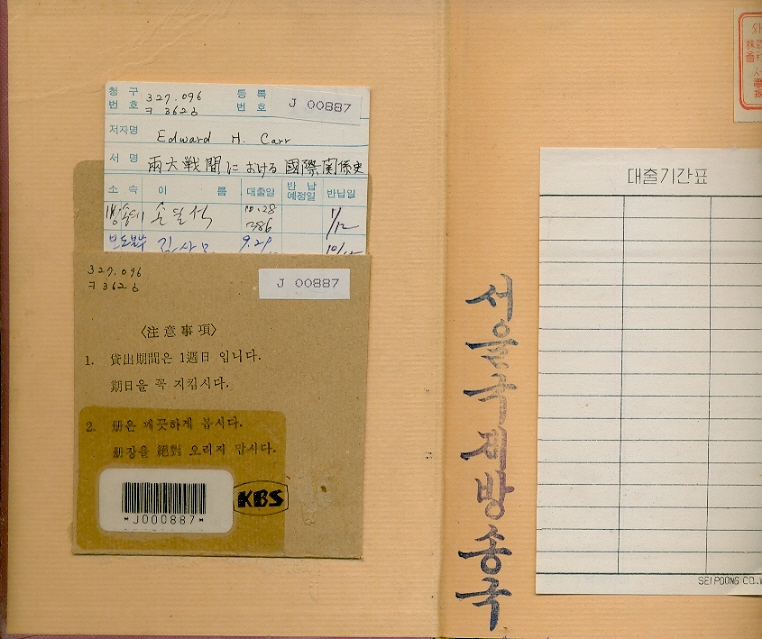 청 구 등 록
번 호 번 호
327.096
ㅋ362ㅎ
J 00887
저자명 Edward H. Carr
서 명 兩大戦間における國際関係史
소 속 이 름 대출일 반 납 예정일 반납일
손달석 10.28 1/12
1986
보도본부 9.29
327.096
ㅋ362ㅎ
J 00887
〈注意事項〉
1. 貸出期間은 1週日 입니다.
期日을 꼭 지킵시다.
2. 册은 깨끗하게 봅시다.
册장을 絕對 오리지 맙시다.
*J000887*
KBS
서울국제방송국
대출기간표
SEI POONG CO.